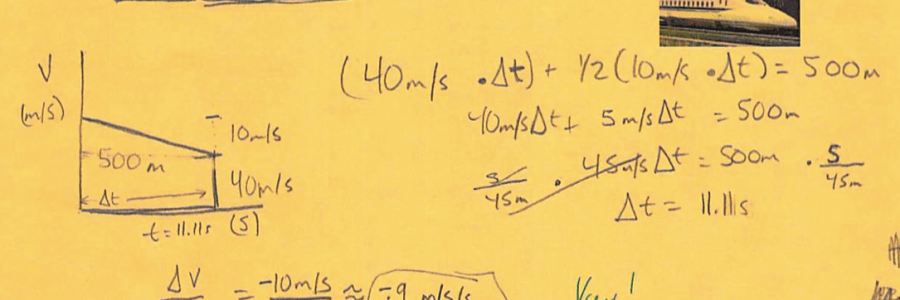 V
(m/s)
10m/s
500m
40m/s
Δt
t=11.11s (s)
(40m/s · Δt) + 1/2 (10m/s · Δt) = 500m
40m/sΔt + 5m/sΔt = 500m
s/45m · 45m/s Δt = 500m · s/45m
Δt = 11.11s
ΔV = -10m/s ≈ -.9 m/s/s